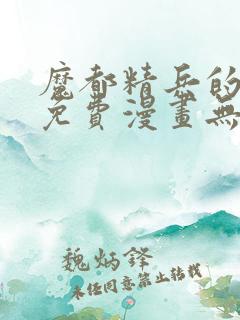 魔都精兵的
免費漫畫無
魏炳鋒
未经同意禁止转载